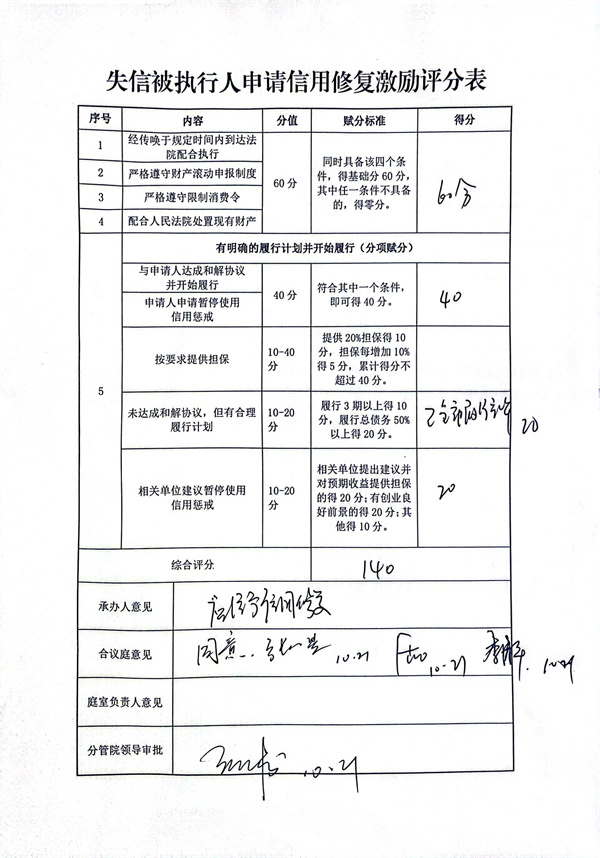 失信被执行人申请信用修复激励评分表
序号 内容 分值 赋分标准 得分
1 经传唤于规定时间内到达法
院配合执行
2 严格遵守财产滚动申报制度
3 严格遵守限制消费令
4 配合人民法院处置现有财产
60分
同时具备该四个条
件，得基础分60分，
其中任一条件不具备
的，得零分。
60分
5
有明确的履行计划并开始履行（分项赋分）
与申请人达成和解协议
并开始履行
申请人申请暂停使用
信用惩戒
40分
符合其中一个条件，
即可得40分。
40
按要求提供担保
10-40
分
提供20%担保得10
分，担保每增加10%
得5分，累计得分不
超过40分。
未达成和解协议，但有合理
履行计划
10-20
分
履行3期以上得10
分，履行总债务50%
以上得20分。
已全部履行 20
相关单位建议暂停使用
信用惩戒
10-20
分
相关单位提出建议并
对预期收益提供担保
的得20分；有创业良
好前景的得20分；其
他得10分。
20
综合评分 140
承办人意见 信用修复
合议庭意见 同意. 10.21 10.21 10.21
庭室负责人意见
分管院领导审批 10.21